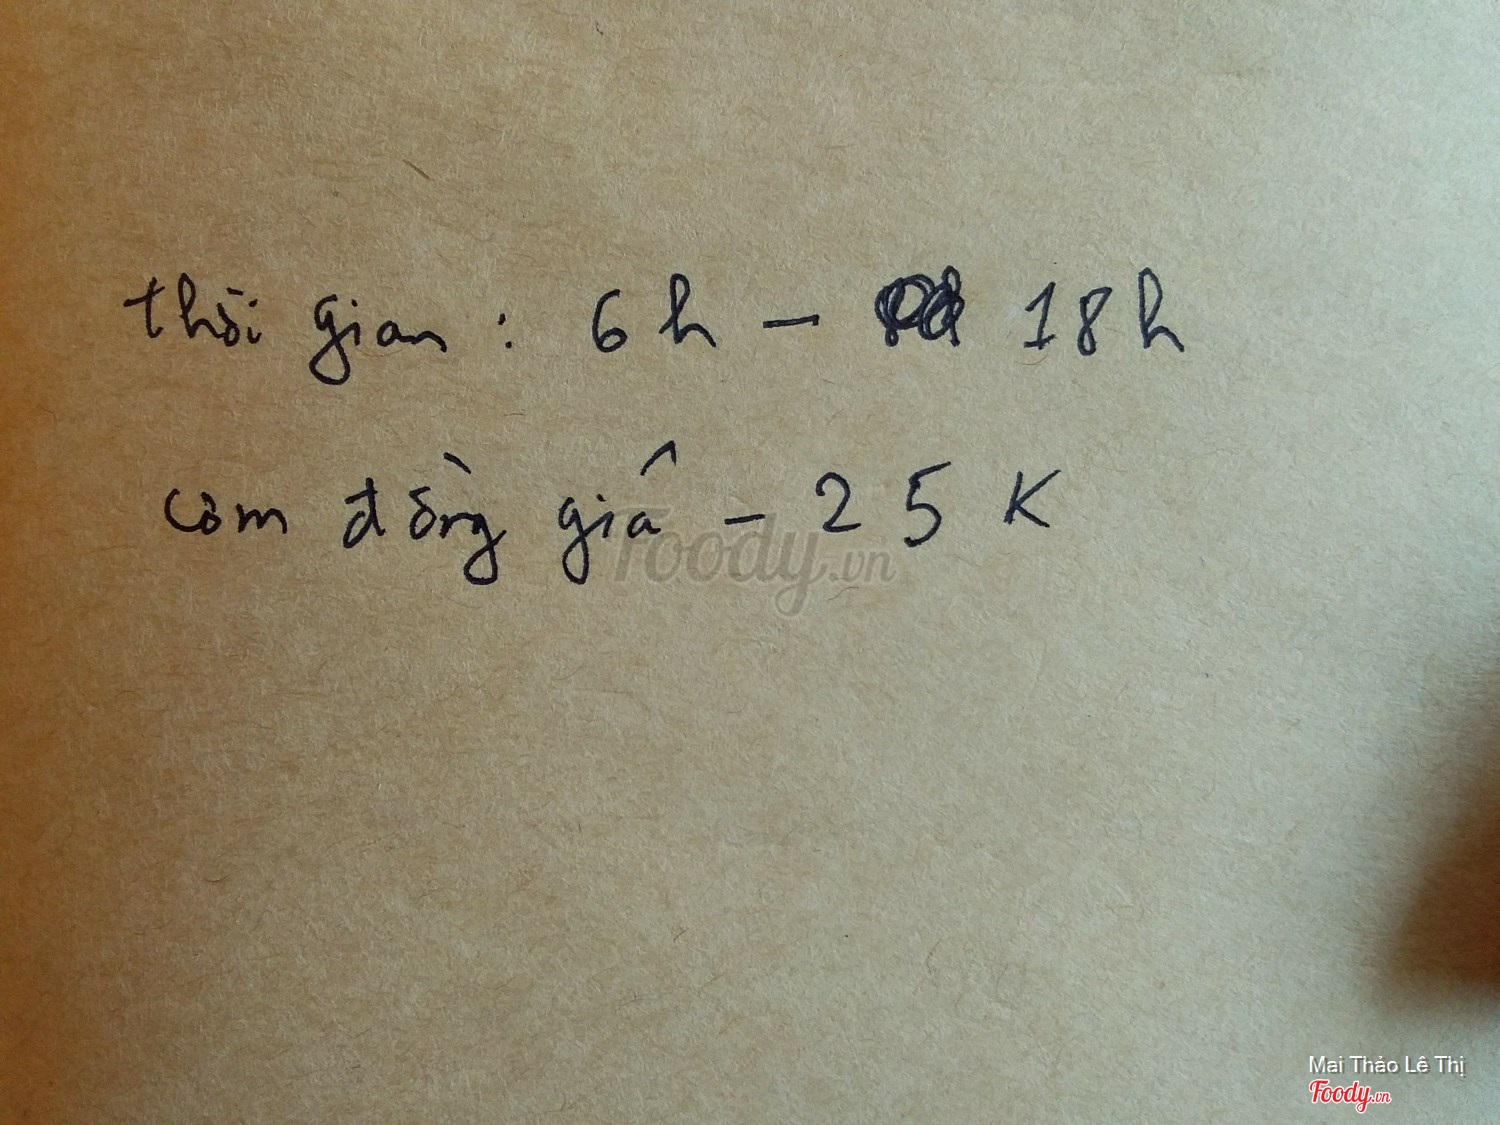 thời gian : 6h - 18h
Cơm đồng giá - 25K
Foody.vn
Mai Thảo Lê Thị
Foody.vn